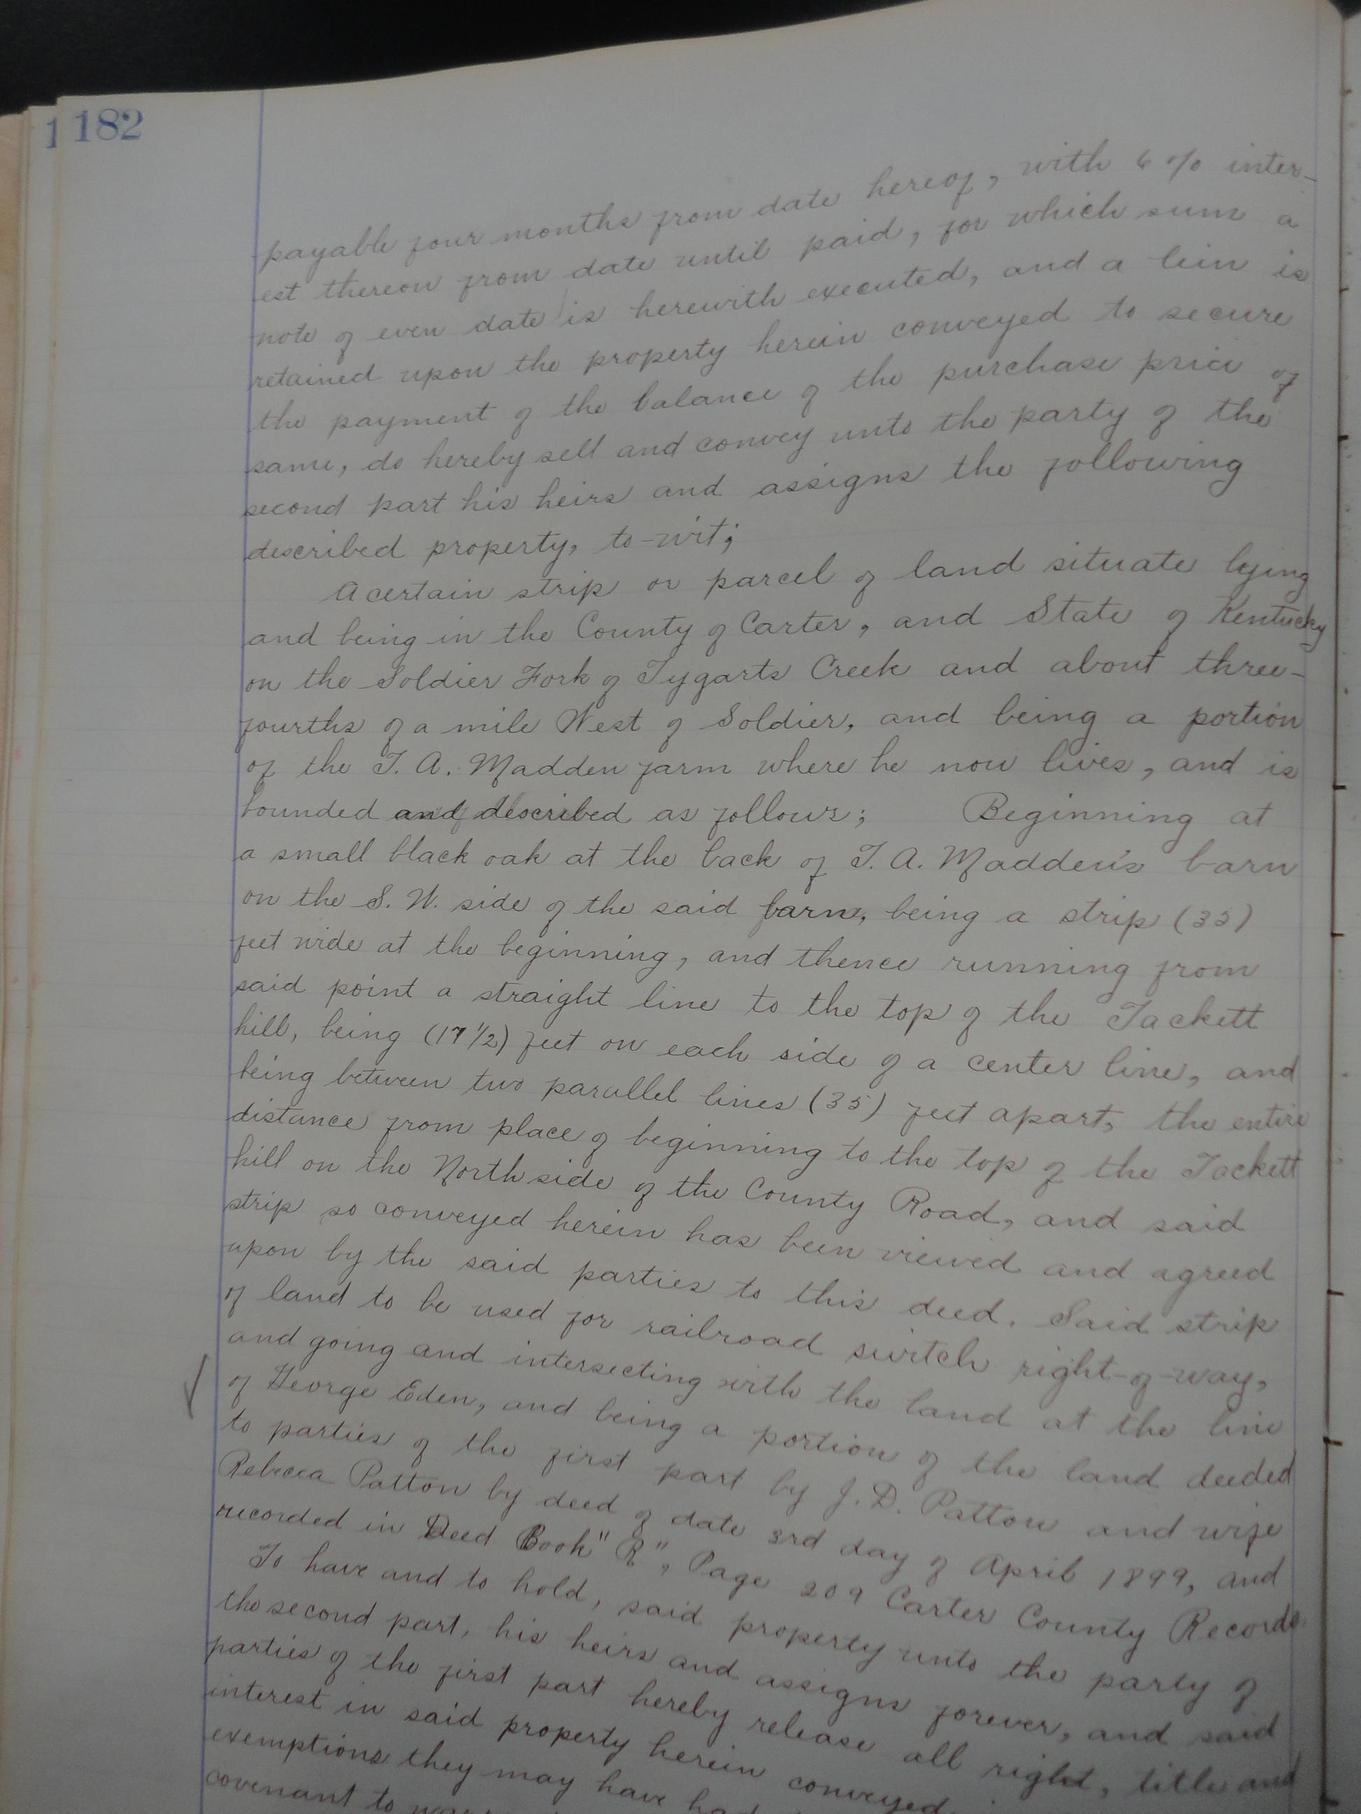 1 182
payable four months from date hereof, with 6% inter-
est thereon from date until paid, for which sum a
note of even date is herewith executed, and a lein is
retained upon the property herein conveyed to secure
the payment of the balance of the purchase price of
same, do hereby sell and convey unto the party of the
second part his heirs and assigns the following
described property, to-wit;
A certain strip or parcel of land situate lying
and being in the County of Carter, and State of Kentucky
on the Soldier Fork of Tygarts Creek and about three-
fourths of a mile West of Soldier, and being a portion
of the T. A. Madden farm where he now lives, and is
bounded and described as follows; Beginning at
a small black oak at the back of T. A. Madden's barn
on the S. W. side of the said barn, being a strip (35)
feet wide at the beginning, and thence running from
said point a straight line to the top of the Tackett
hill, being (17 1/2) feet on each side of a center line, and
being between two parallel lines (35) feet apart, the entire
distance from place of beginning to the top of the Tackett
hill on the North side of the County Road, and said
strip so conveyed herein has been viewed and agreed
upon by the said parties to this deed. Said strip
of land to be used for railroad switch right-of-way,
and going and intersecting with the land at the line
of George Eden, and being a portion of the land deeded
to parties of the first part by J. D. Patton and wife
Rebecca Patton by deed of date 3rd day of April 1899, and
recorded in Deed Book "R", Page 209 Carter County Records.
To have and to hold, said property unto the party of
the second part, his heirs and assigns forever, and said
parties of the first part hereby release all right, title and
interest in said property herein conveyed
exemptions they may have had
covenant to